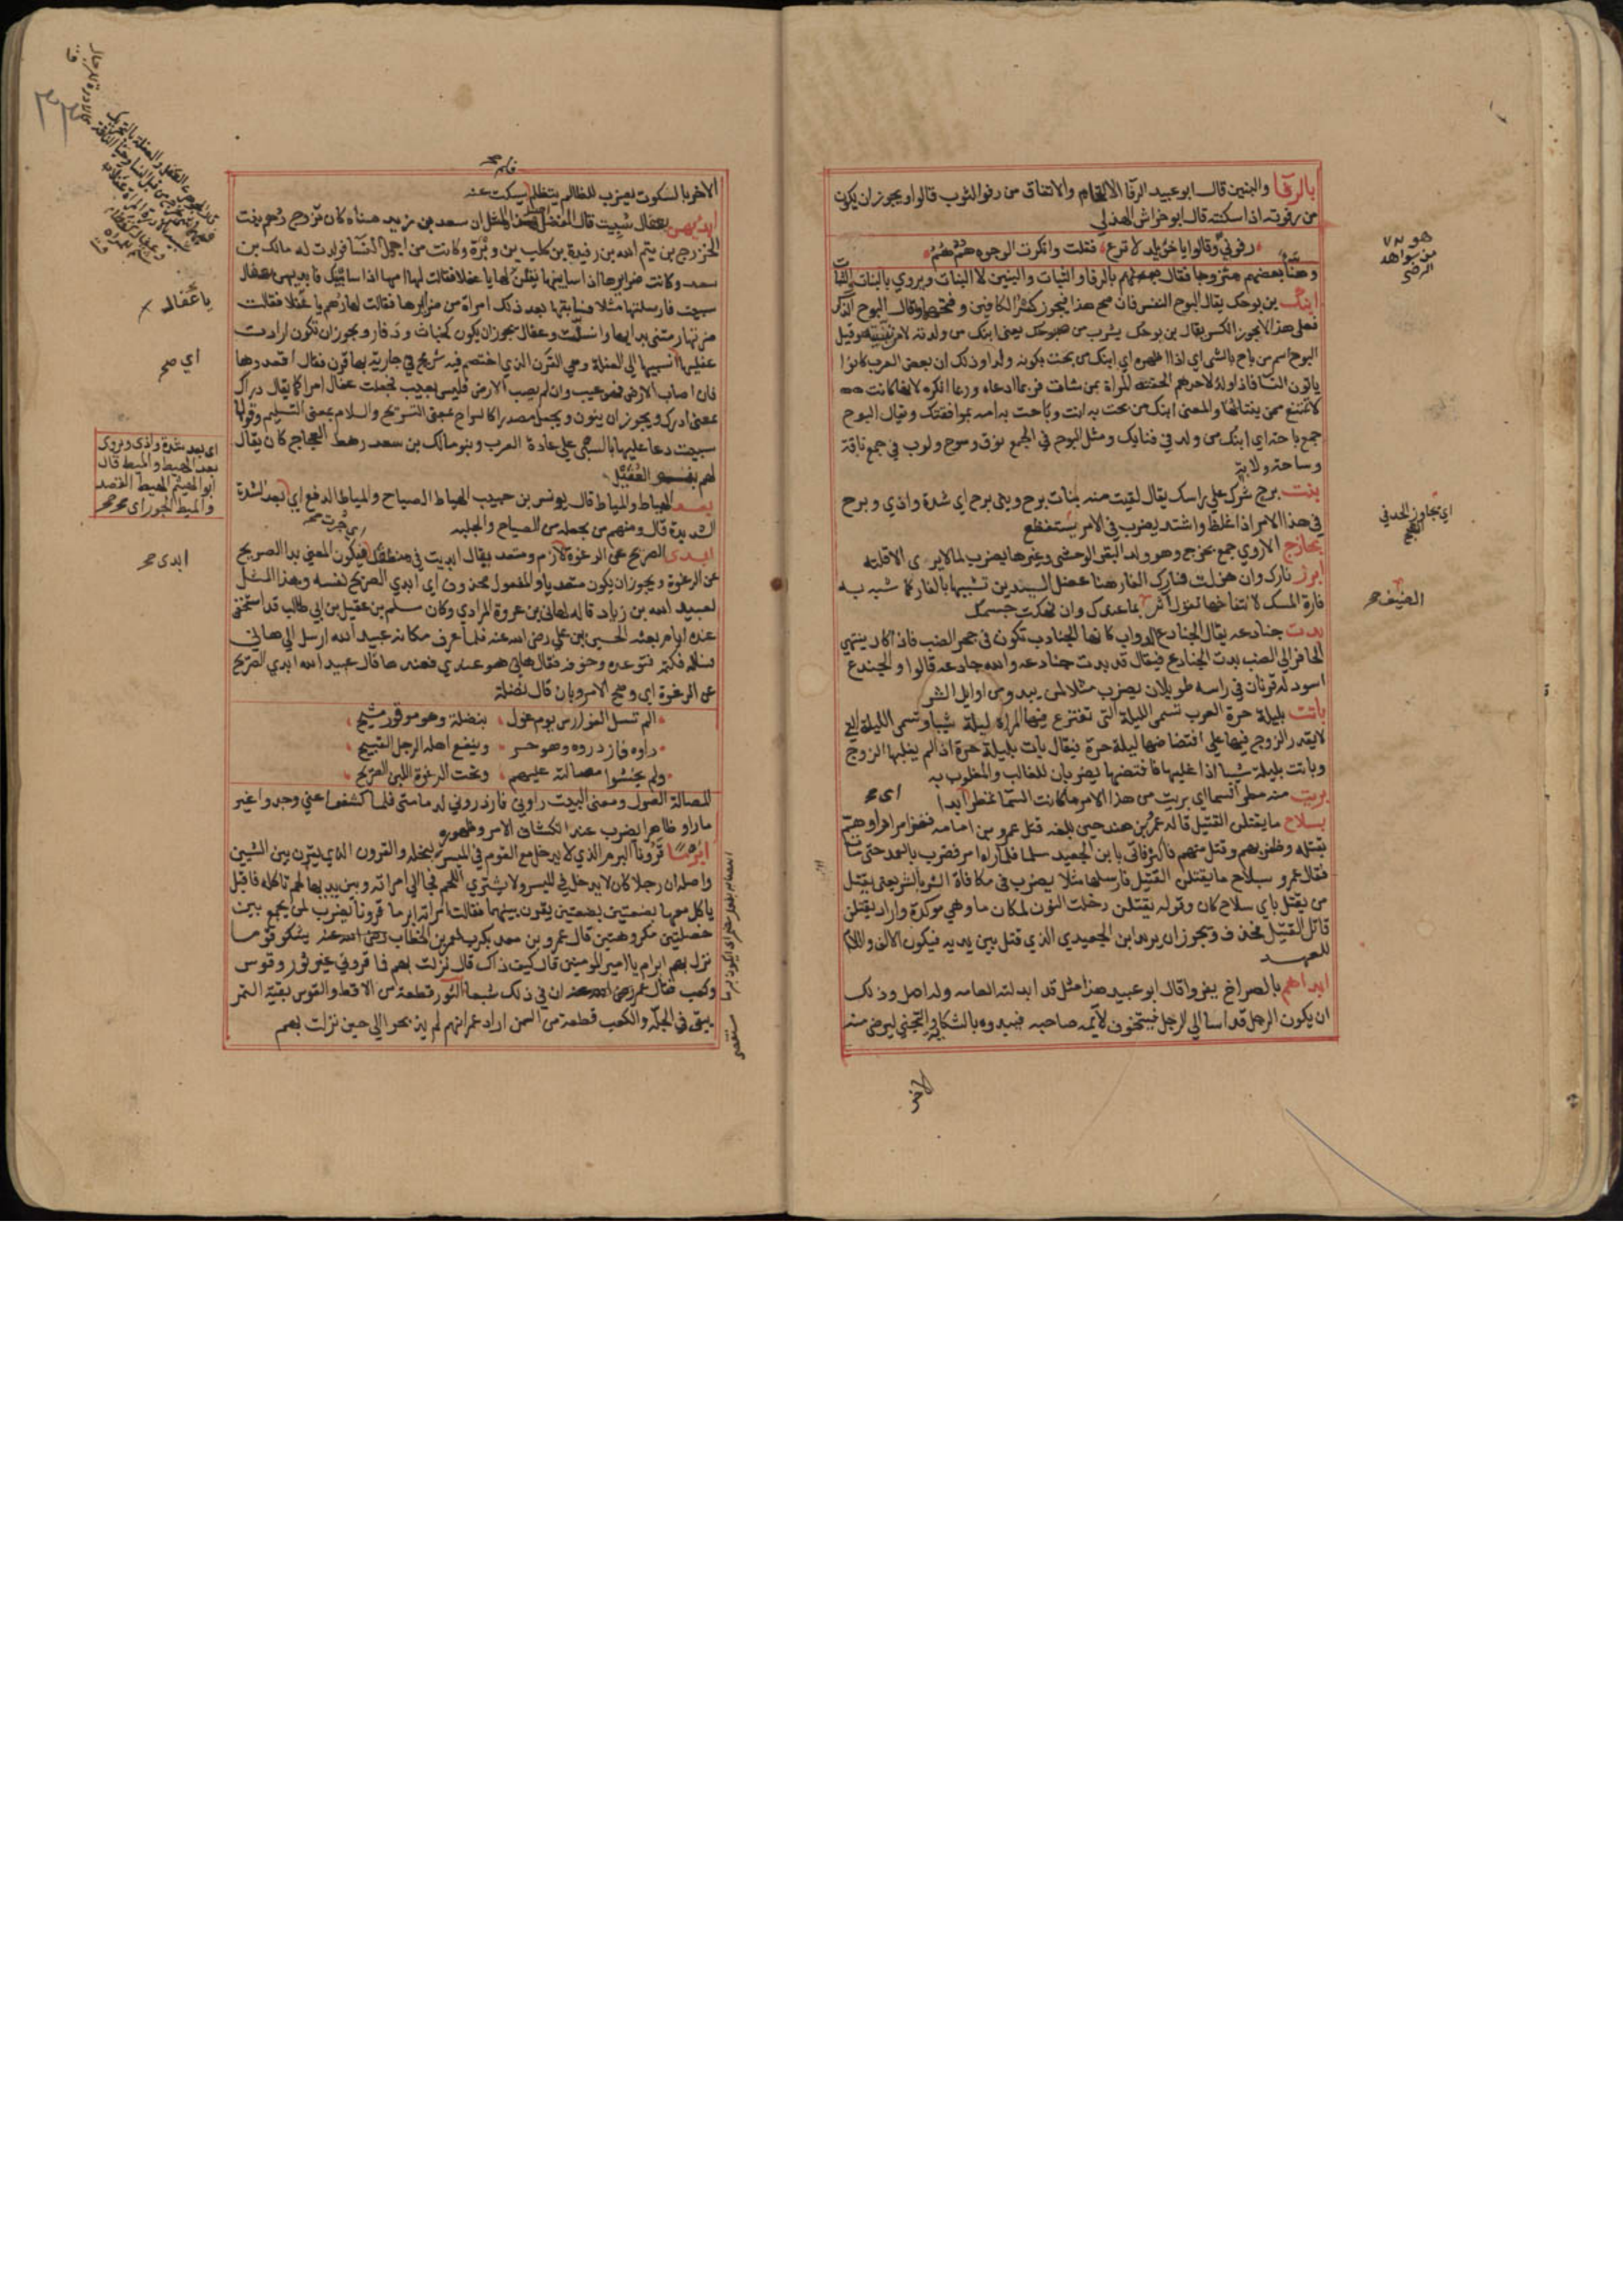 بالرفا والبنين قال ابو عبيد الرفا الالتحام والاتفاق من رفو الثوب قالوا ويجوز ان يكون
من رفوته اذا سكنته قال ابو خراش الهذلي
رفوني وقالوا يا خويلد لا ترع فقلت وانكرت الوجوه هم هم
وهنا بعضهم متزوجا فقال بالرفا والثبات والبنين لا البنات ويروي بالنبات
ابنك من بوحك يقال البوح النفس فان صح هذا فيجوز كسر الكافين وفتحهما ويقال البوح الذكر
فعلي هذا لا يجوز الكسر يقال ابن بوحك يشرب من صبوحك يعني ابنك من ولدته لا من تبنيته وقيل
البوح اسم من باح بالشي اي اذا اظهره اي ابنك من بحت بكونه ولدا وذلك ان بعض العرب كانوا
ياتون النسا فاذا ولد لاحدهم الحقته المراة بمن شات فربما ادعاه وربما انكره لانها كانت
لا تمتنع ممن ينتابها والمعني ابنك من بحت به انت وباحت به امه بموافقتك ويقال البوح
جمع باحة اي ابنك من ولد في فنايك ومثل البوح في الجمع نوق وسوح ولوب في جمع ناقة
وساحة ولابة
بنت برح شرك علي راسك يقال لقيت منه بنات برح وبني برح اي شدة واذي وبرح
في هذا الامر اذا غلظ واشتد يضرب في الامر يستفظع
بحازج الاروي جمع بحزج وهو ولد البقر الوحشي وغيرها يضرب لما لا يرى الا قلته
ابرز نارك وان هزلت فارك الفار هنا عضل اليدين تشبيها بالفار كما شبه به
فارة المسك لانتفاخها تقول اثر بما عندك وان نهكت جسمك
بدت جنادعه يقال الجنادع الدواب كانها الجنادب تكون في جحر الضب فاذا كاد ينتهي
الحافر الي الضب بدت الجنادع فيقال قد بدت جنادعه والله جادعه قالوا والجندع
اسود له قرنان في راسه طويلان يضرب مثلا لمن يبدو من اوايل الشر
باتت بليلة حرة العرب تسمي الليلة التي تفترع فيها المراة ليلة شيبا وتسمي الليلة التي
لا يقدر الزوج فيها علي افتضاضها ليلة حرة فيقال باتت بليلة حرة اذا لم يغلبها الزوج
وباتت بليلة شيبا اذا غلبها فافتضها يضربان للغالب والمغلوب به
بريت منه مطر السما اي بريت من هذا الامر ما كانت السما تمطر ابدا
بسلاح ما يقتلن القتيل قاله عمرو بن هند حين بلغه قتل عمرو بن امامه فغزا مرادا وهم
بقتله وظفر بهم وقتل منهم فاكثر فاتي بابن الجعيد سلما فلما راه امر فضرب بالعمد حتى مات
فقال عمرو بسلاح ما يقتلن القتيل فارسلها مثلا يضرب في مكافاة الشر بالشر يعني يقتل
من يقتل باي سلاح كان وقوله يقتلن دخلت النون لمكان ما وهي موكدة واراد يقتلن
قاتل القتيل فحذف ويجوز ان يريد ابن الجعيد الذي قتل بين يديه فيكون الالف واللام
للعهد
ابداهم بالصراخ يفروا قال ابو عبيد هذا مثل قد ابدلته العامه وله اصل وذلك
ان يكون الرجل قد اسا الي الرجل فيتخوف لايمة صاحبه فيبدوه بالشكاية والتجني ليرضي منه
الاخر
هو من
شواهد
الرضي
اي تجاوز الحد في
القبح
الضيف
الاخر بالسكوت يضرب للظالم يتظلم ليسكت عنه
ابديهن بعفال سبيت قال المفضل اصل هذا المثل ان سعد بن زيد مناه كان تزوج رهم بنت
الخزرج بن تيم الله بن رفيدة بن كلب بن وبرة وكانت من اجمل النسا فولدت له مالك بن
سعد وكانت ضرايرها اذا ساببنها يقلن لها يا عفلا فقالت لها امها اذا ساببنك فابديهن بعفال
سبيت فارسلتها مثلا فسابتها بعد ذلك امراة من ضرايرها فقالت لها رهم يا عفلا فقالت
ضرتها رمتني بدايها وانسلت وعفال يجوز ان يكون كخباث ودفار ويجوز ان تكون ارادت
عفلها اي نسبيها الي العفلة وهي القرن الذي اختصم فيه شريح في جارية بها قرن فقال اقعدوها
فان اصاب الارض فهو عيب وان لم يصب الارض فليس بعيب فجعلت عفال امرا كما يقال دراك
بمعني ادرك ويجوز ان ينون ويجعل مصدرا كالسراح بمعني التسريح والسلام بمعني التسليم وقولها
سبيت دعا عليها بالسبي علي عادة العرب وبنو مالك بن سعد رهط العجاج كان يقال
لهم بنو العفيل
بعد الهياط والمياط قال يونس بن حبيب الهياط الصياح والمياط الدفع اي بعد الشدة
الشديدة قال ومنهم من يجعله من الصياح والجلبه
ابدي الصريح عن الرغوة لازم ومتعد يقال ابديت في منطقك فيكون المعني بدا الصريح
عن الرغوة ويجوز ان يكون متعديا والمفعول محذوف اي ابدي الصريح نفسه وهذا المثل
لعبيد الله بن زياد قاله لهاني بن عروة المرادي وكان مسلم بن عقيل بن ابي طالب قد استخفي
عنده ايام بعثه الحسين بن علي رضي الله عنه فلما عرف مكانه عبيد الله ارسل الي هاني
فساله فكتم فتوعده وخوفه فقال هاني هو عندي فعندها قال عبيد الله ابدي الصريح
عن الرغوة اي وضح الامر وبان قال نضلة
الم تسل الفوارس يوم غول بنضلة وهو موتور مشيح
راوه فازدروه وهو حر وينفع اهله الرجل القبيح
ولم يخشوا مصالته عليهم وتحت الرغوة اللبن الصريح
المصالة الصول ومعني البيت راوني فازدروني لدمامتي فلما كشفوا عني وجدوا غير
ما راوا ظاهرا يضرب عند انكشاف الامر وظهوره
ابرما قرونا البرم الذي لا يدخل مع القوم في الميسر لبخله والقرون الذي يقرن بين الشيين
واصله ان رجلا كان لا يدخل في الميسر ولا يشتري اللحم فجا الي امراته وبين يديها لحم تاكله فاقبل
ياكل معها بضعتين بضعتين يقرن بينهما فقالت امراته ابرما قرونا يضرب لمن يجمع بين
خصلتين مكروهتين قال عمرو بن معد يكرب لعمر بن الخطاب رضي الله عنه يشكو قوما
نزل بهم ابرام يا امير المومنين قال كيف ذاك قال نزلت بهم فما قروني غير ثور وقوس
وكعب فقال عمر رضي الله عنه ان في ذلك شبعا الثور قطعة من الاقط والقوس بقية التمر
يبقي في الجلة والكعب قطعة من السمن اراد عمر انهم لم يذبحوا لي حين نزلت بهم
يا عفال
اي صح
اي بعد شدة واذي ويروي
بعد الهيط والميط قال
ابو الهيثم الهيط القصد
والميط الجور اي
ابدي